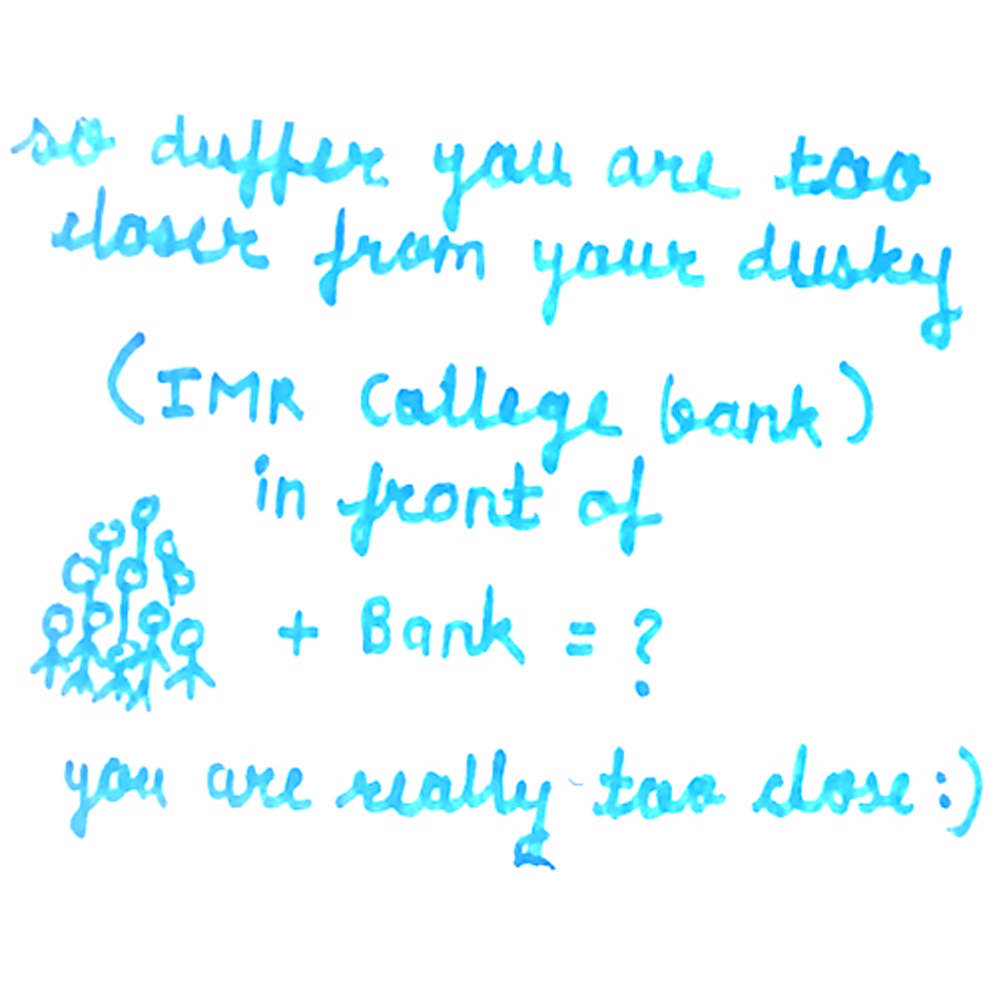 so duffer you are too
closer from your dusky
(IMR College bank)
in front of
+ Bank = ?
you are really too close :)